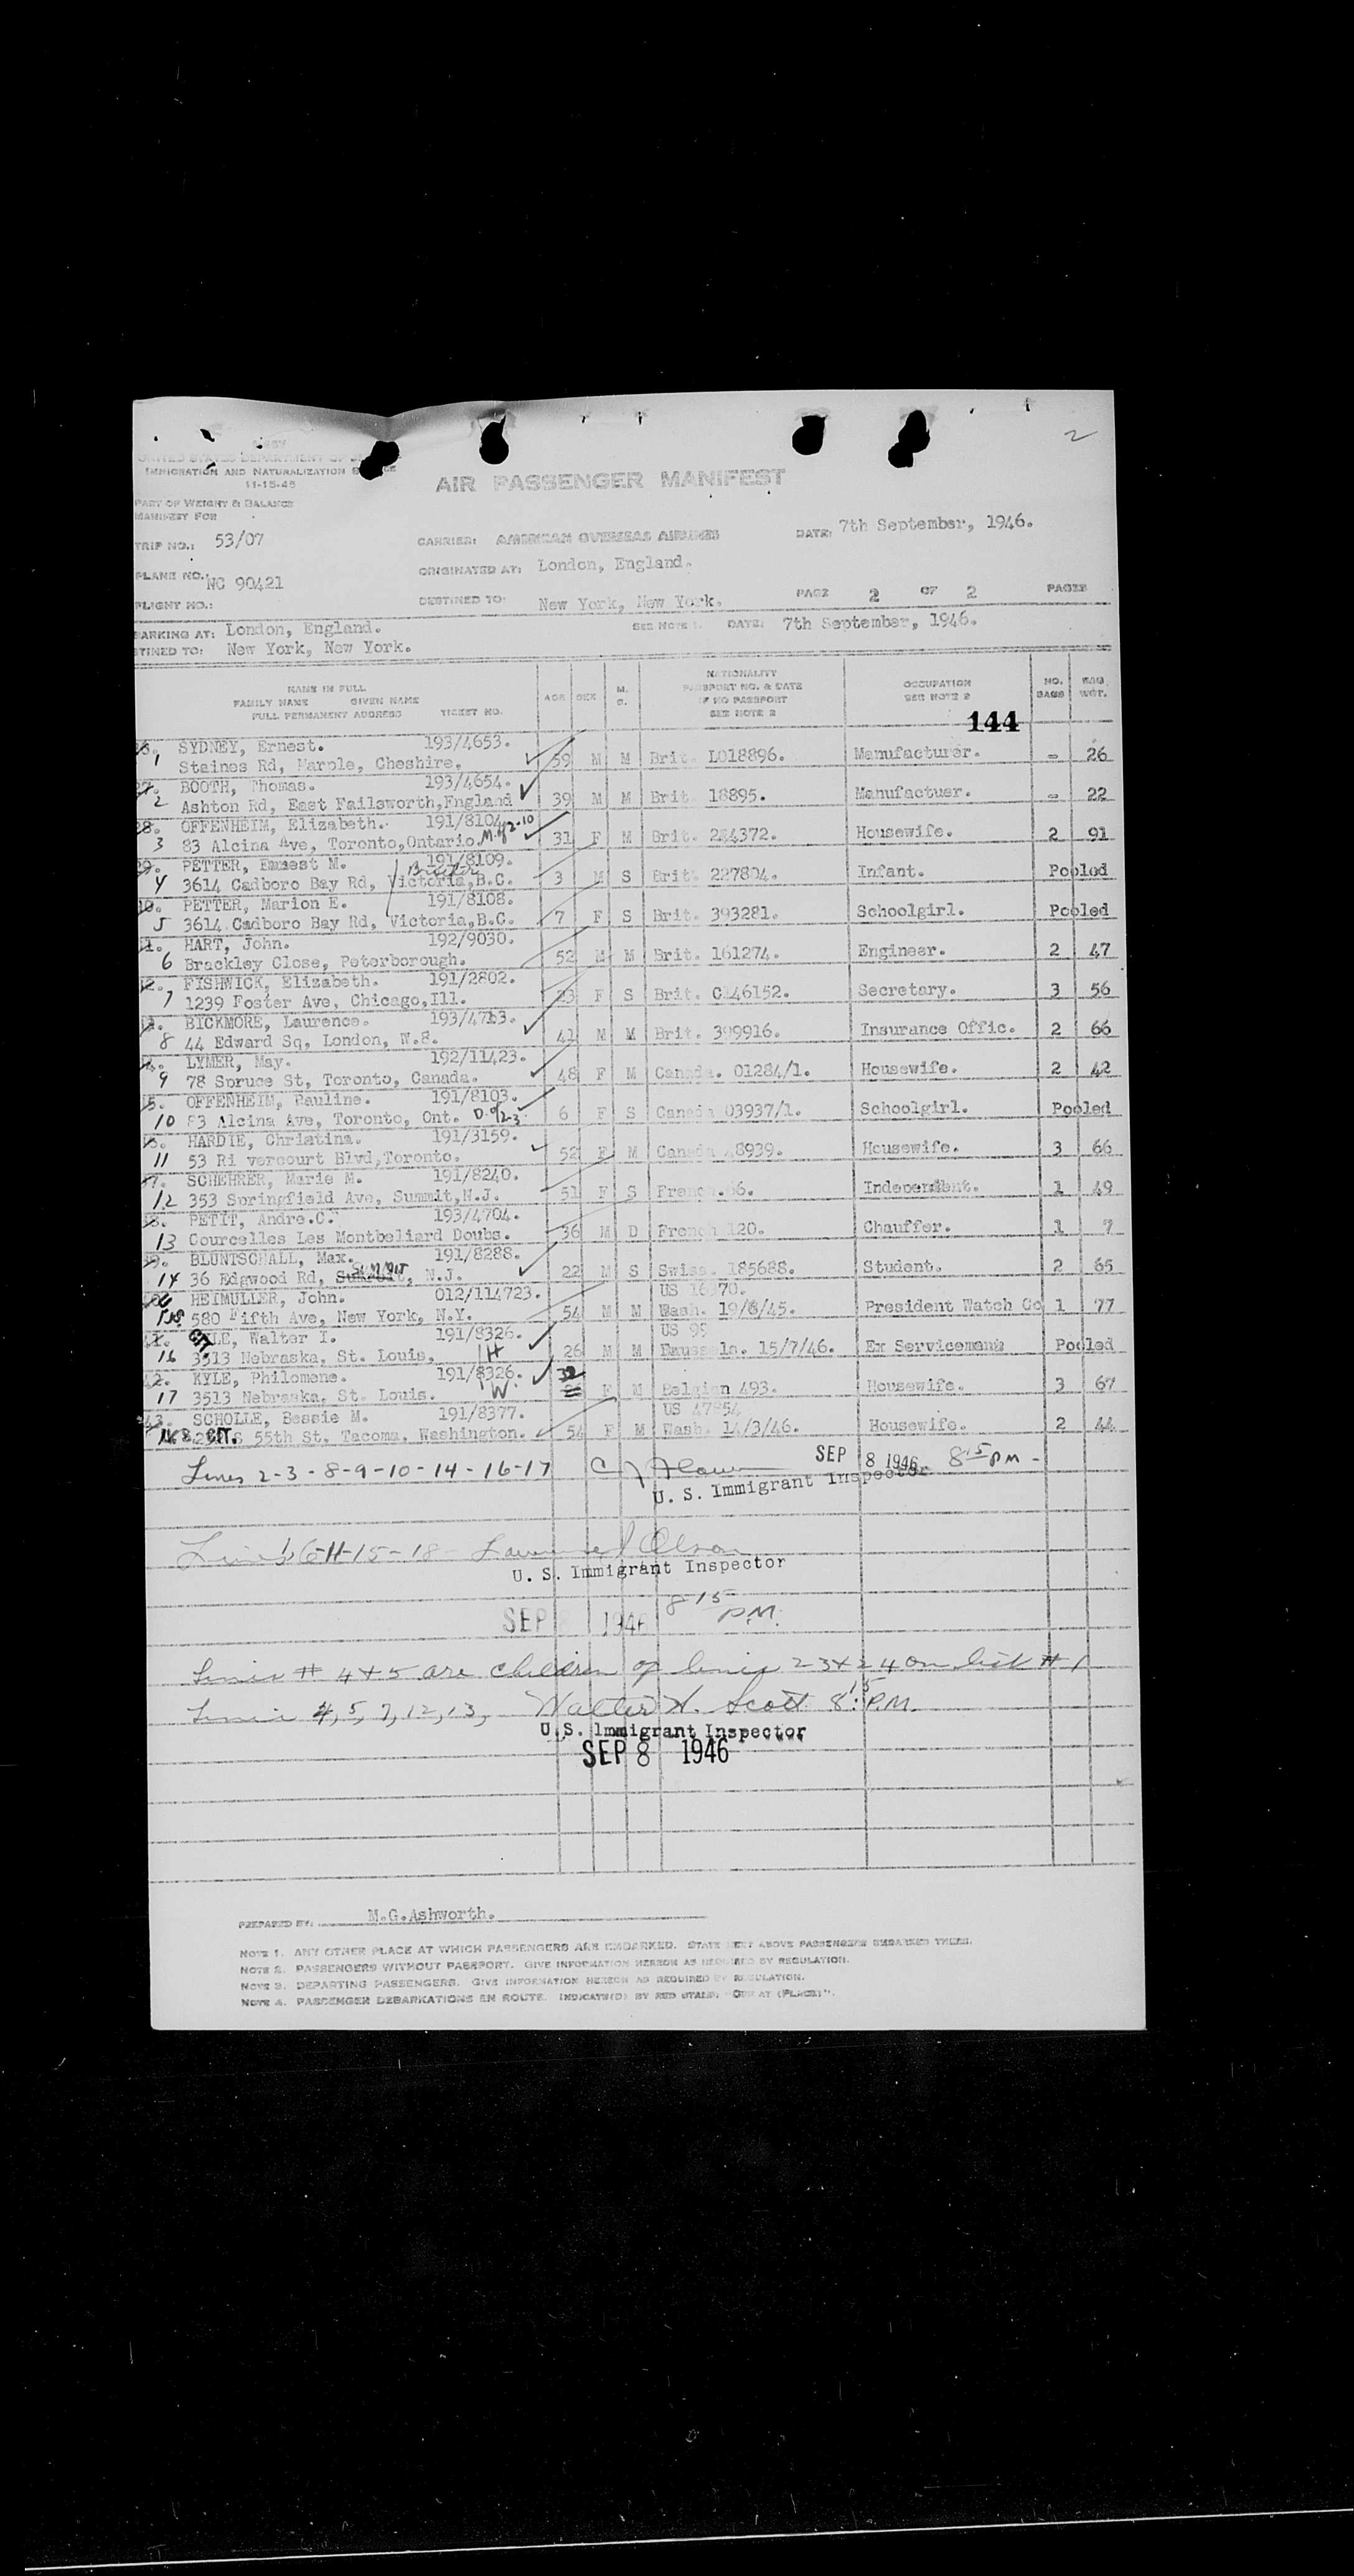 2
UNITED STATES DEPARTMENT OF
IMMIGRATION AND NATURALIZATION
11-15-45
AIR PASSENGER MANIFEST
PART OF WEIGHT & BALANCE
MANIFEST FOR
TRIP NO.: 53/07 CARRIER: AMERICAN OVERSEAS AIRLINES DATE: 7th September, 1946.
PLANE NO. NC 90421 ORIGINATED AT: London, England.
FLIGHT NO.: DESTINED TO: New York, New York. PAGE 2 OF 2 PAGES
BARKING AT: London, England. SEE NOTE 1. DATE: 7th September, 1946.
STINED TO: New York, New York.
NAME IN FULL
FAMILY NAME GIVEN NAME
FULL PERMANENT ADDRESS TICKET NO. AGE SEX M. S. NATIONALITY PASSPORT NO. & DATE IF NO PASSPORT SEE NOTE 2 OCCUPATION SEE NOTE 2 NO. BAGS BAG WGT.
144
SYDNEY, Ernest. 193/4653.
1 Staines Rd, Marple, Cheshire. 59 M M Brit. L018896. Manufacturer. - 26
BOOTH, Thomas. 193/4654.
2 Ashton Rd, East Failsworth,England 39 M M Brit. 18895. Manufactuer. - 22
28. OFFENHEIM, Elizabeth. 191/8104. M. of 2-10
3 83 Alcina Ave, Toronto,Ontario. 31 F M Brit. 284372. Housewife. 2 91
29. PETTER, Ernest M. 191/8109. Brother
4 3614 Cadboro Bay Rd, Victoria,B.C. 3 M S Brit. 227804. Infant. Pooled
PETTER, Marion E. 191/8108.
5 3614 Cadboro Bay Rd, Victoria,B.C. 7 F S Brit. 393281. Schoolgirl. Pooled
HART, John. 192/9030.
6 Brackley Close, Peterborough. 52 M M Brit. 161274. Engineer. 2 47
FISHWICK, Elizabeth. 191/2802.
7 1239 Foster Ave, Chicago,Ill. 23 F S Brit. C146152. Secretary. 3 56
BICKMORE, Laurence. 193/4713.
8 44 Edward Sq, London, W.8. 41 M M Brit. 399916. Insurance Offic. 2 66
LYMER, May. 192/11423.
9 78 Spruce St, Toronto, Canada. 48 F M Canada. 01284/1. Housewife. 2 42
OFFENHEIM, Pauline. 191/8103.
10 83 Alcina Ave, Toronto, Ont. D. of 2-3. 6 F S Canada 03937/1. Schoolgirl. Pooled
HARDIE, Christina. 191/3159.
11 53 Ri vercourt Blvd,Toronto. 52 F M Canada 48939. Housewife. 3 66
SCHEHRER, Marie M. 191/8240.
12 353 Springfield Ave, Summit,N.J. 51 F S French.66. Independent. 1 49
PETIT, Andre.C. 193/4704.
13 Courcelles Les Montbeliard Doubs. 36 M D French 120. Chauffer. 1 7
BLUNTSCHALL, Max. 191/8288.
14 36 Edgwood Rd, Summit, N.J. 22 M S Swiss. 185688. Student. 2 65
HEIMULLER, John. 012/114723. US 16370.
15 580 Fifth Ave, New York, N.Y. 54 M M Wash. 19/8/45. President Watch Co 1 77
KYLE, Walter I. 191/8326. US 95
16 3513 Nebraska, St. Louis, H 26 M M Brussels. 15/7/46. Ex Serviceman Pooled
42. KYLE, Philomene. 191/8326. 32
17 3513 Nebraska, St. Louis. W. F M Belgian 493. Housewife. 3 67
43. SCHOLLE, Bessie M. 191/8377. US 47854
S 55th St, Tacoma, Washington. 54 F M Wash. 14/3/46. Housewife. 2 44
Lines 2-3-8-9-10-14-16-17 SEP 8 1946 8 15 PM -
U. S. Immigrant Inspector
Lines 1-6-11-15-18- Olson
U. S. Immigrant Inspector
SEP 8 1946 8 15 P.M.
Lines # 4 + 5 are children of lines 23 + 24 on list # 1
Lines 4, 5, 7, 12, 13, Walter H. Scott 8:15 P.M.
U.S. Immigrant Inspector
SEP 8 1946
PREPARED BY: M.G.Ashworth.
NOTE 1. ANY OTHER PLACE AT WHICH PASSENGERS ARE EMBARKED. STATE NEXT ABOVE PASSENGERS EMBARKED THERE.
NOTE 2. PASSENGERS WITHOUT PASSPORT. GIVE INFORMATION HEREON AS REQUIRED BY REGULATION.
NOTE 3. DEPARTING PASSENGERS. GIVE INFORMATION HEREON AS REQUIRED BY REGULATION.
NOTE 4. PASSENGER DEBARKATIONS EN ROUTE. INDICATE(D) BY RED STAMP "OFF AT (PLACE)".